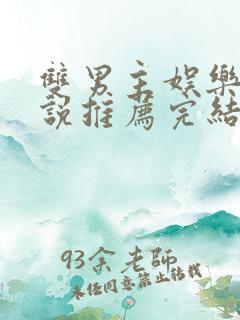 雙男主娛樂
說推薦完結
93余老師
未任同意禁止轉載